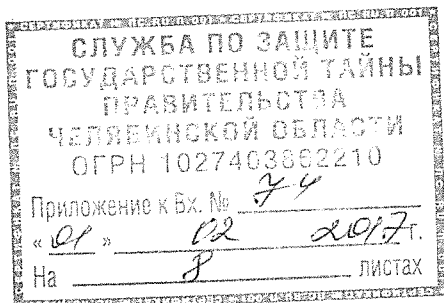 СЛУЖБА ПО ЗАЩИТЕ
ГОСУДАРСТВЕННОЙ ТАЙНЫ
ПРАВИТЕЛЬСТВА
ЧЕЛЯБИНСКОЙ ОБЛАСТИ
ОГРН 1027403862210
Приложение к Вх. № 74
« 01 » 02 2017 г.
На 8 листах